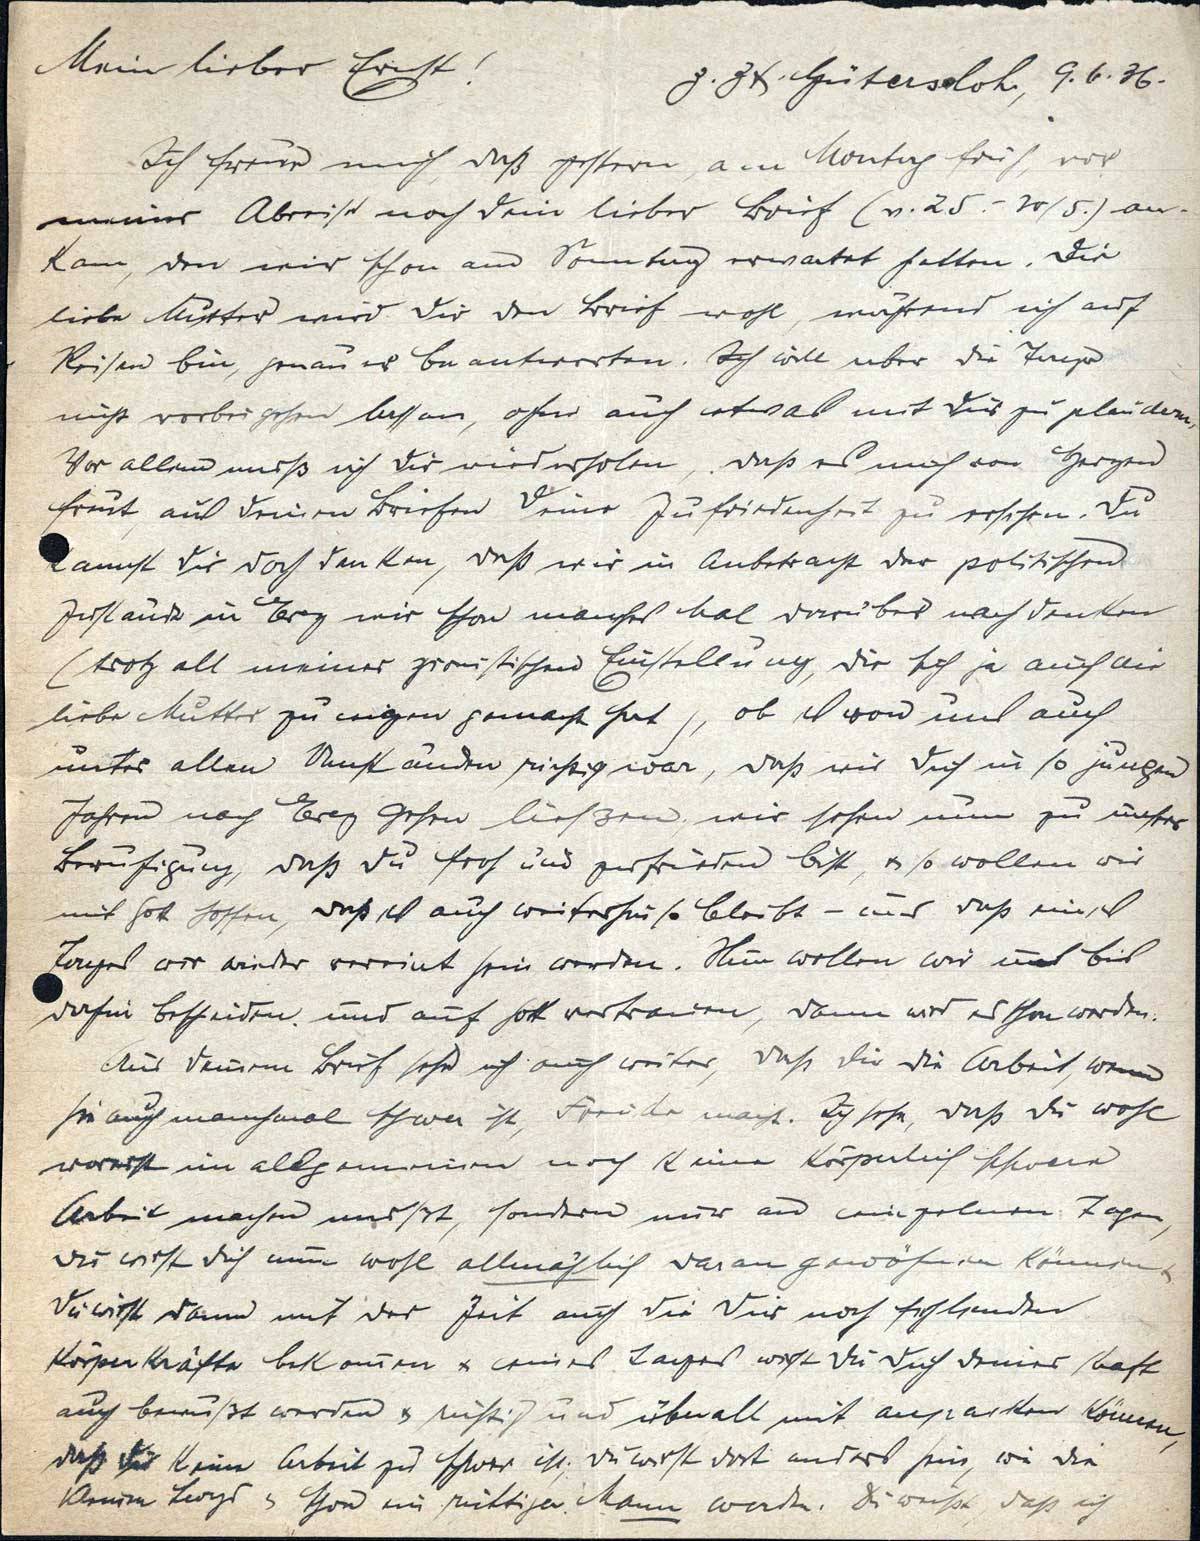 Mein lieber Ernst!
z. Zt. Gütersloh, 9.6.36.
Ich freue mich, daß gestern, am Montag früh, vor
meiner Abreise noch dein lieber Brief (v. 25.- /5.) an-
kam, den wir schon am Sonntag erwartet hatten. Die
liebe Mutter wird dir den Brief wohl, während ich auf
Reisen bin, genauer beantworten. Ich will aber die Tage
nicht vorbeigehen lassen, ohne auch etwas mit dir zu plaudern.
Vor allem muß ich dir wiederholen, daß es mich von Herzen
freut, aus deinen Briefen deine Zufriedenheit zu ersehen. Du
kannst dir doch denken, daß wir in Anbetracht der politischen
Zustände in Erez wir schon manches Mal darüber nachdenken
(trotz all meiner zionistischen Einstellung, die sich ja auch die
liebe Mutter zu eigen gemacht hat), ob es von uns auch
unter allen Umständen richtig war, daß wir dich in so jungen
Jahren nach Erez gehen ließen, wir sehen nun zu unser
Beruhigung, daß du froh und zufrieden bist, & so wollen wir
mit Gott hoffen, daß es auch weiterhin so bleibt – und daß eines
Tages wir wieder vereint sein werden. Nun wollen wir uns bis
dahin bescheiden und auf Gott vertrauen, dann wird es schon werden.
Aus deinem Brief sehe ich auch weiter, daß dir die Arbeit, wenn
sie auch manchmal schwer ist, Freude macht. Ich sehe, daß du wohl
vorerst im allgemeinen noch keine körperlich schwere
Arbeit machen mußt, sondern nur an einzelnen Tagen,
du wirst dich nun wohl allmählich daran gewöhnen können &
du wirst dann mit der Zeit auch die dir noch fehlenden
Körperkräfte bekommen & eines Tages wirst du dich deiner Kraft
auch bewußt werden & richtig und überall mit anpacken können,
daß dir keine Arbeit zu schwer ist, du wirst dort anders sein, wie die
& schon ein richtiger Mann werden. Du weißt, daß ich